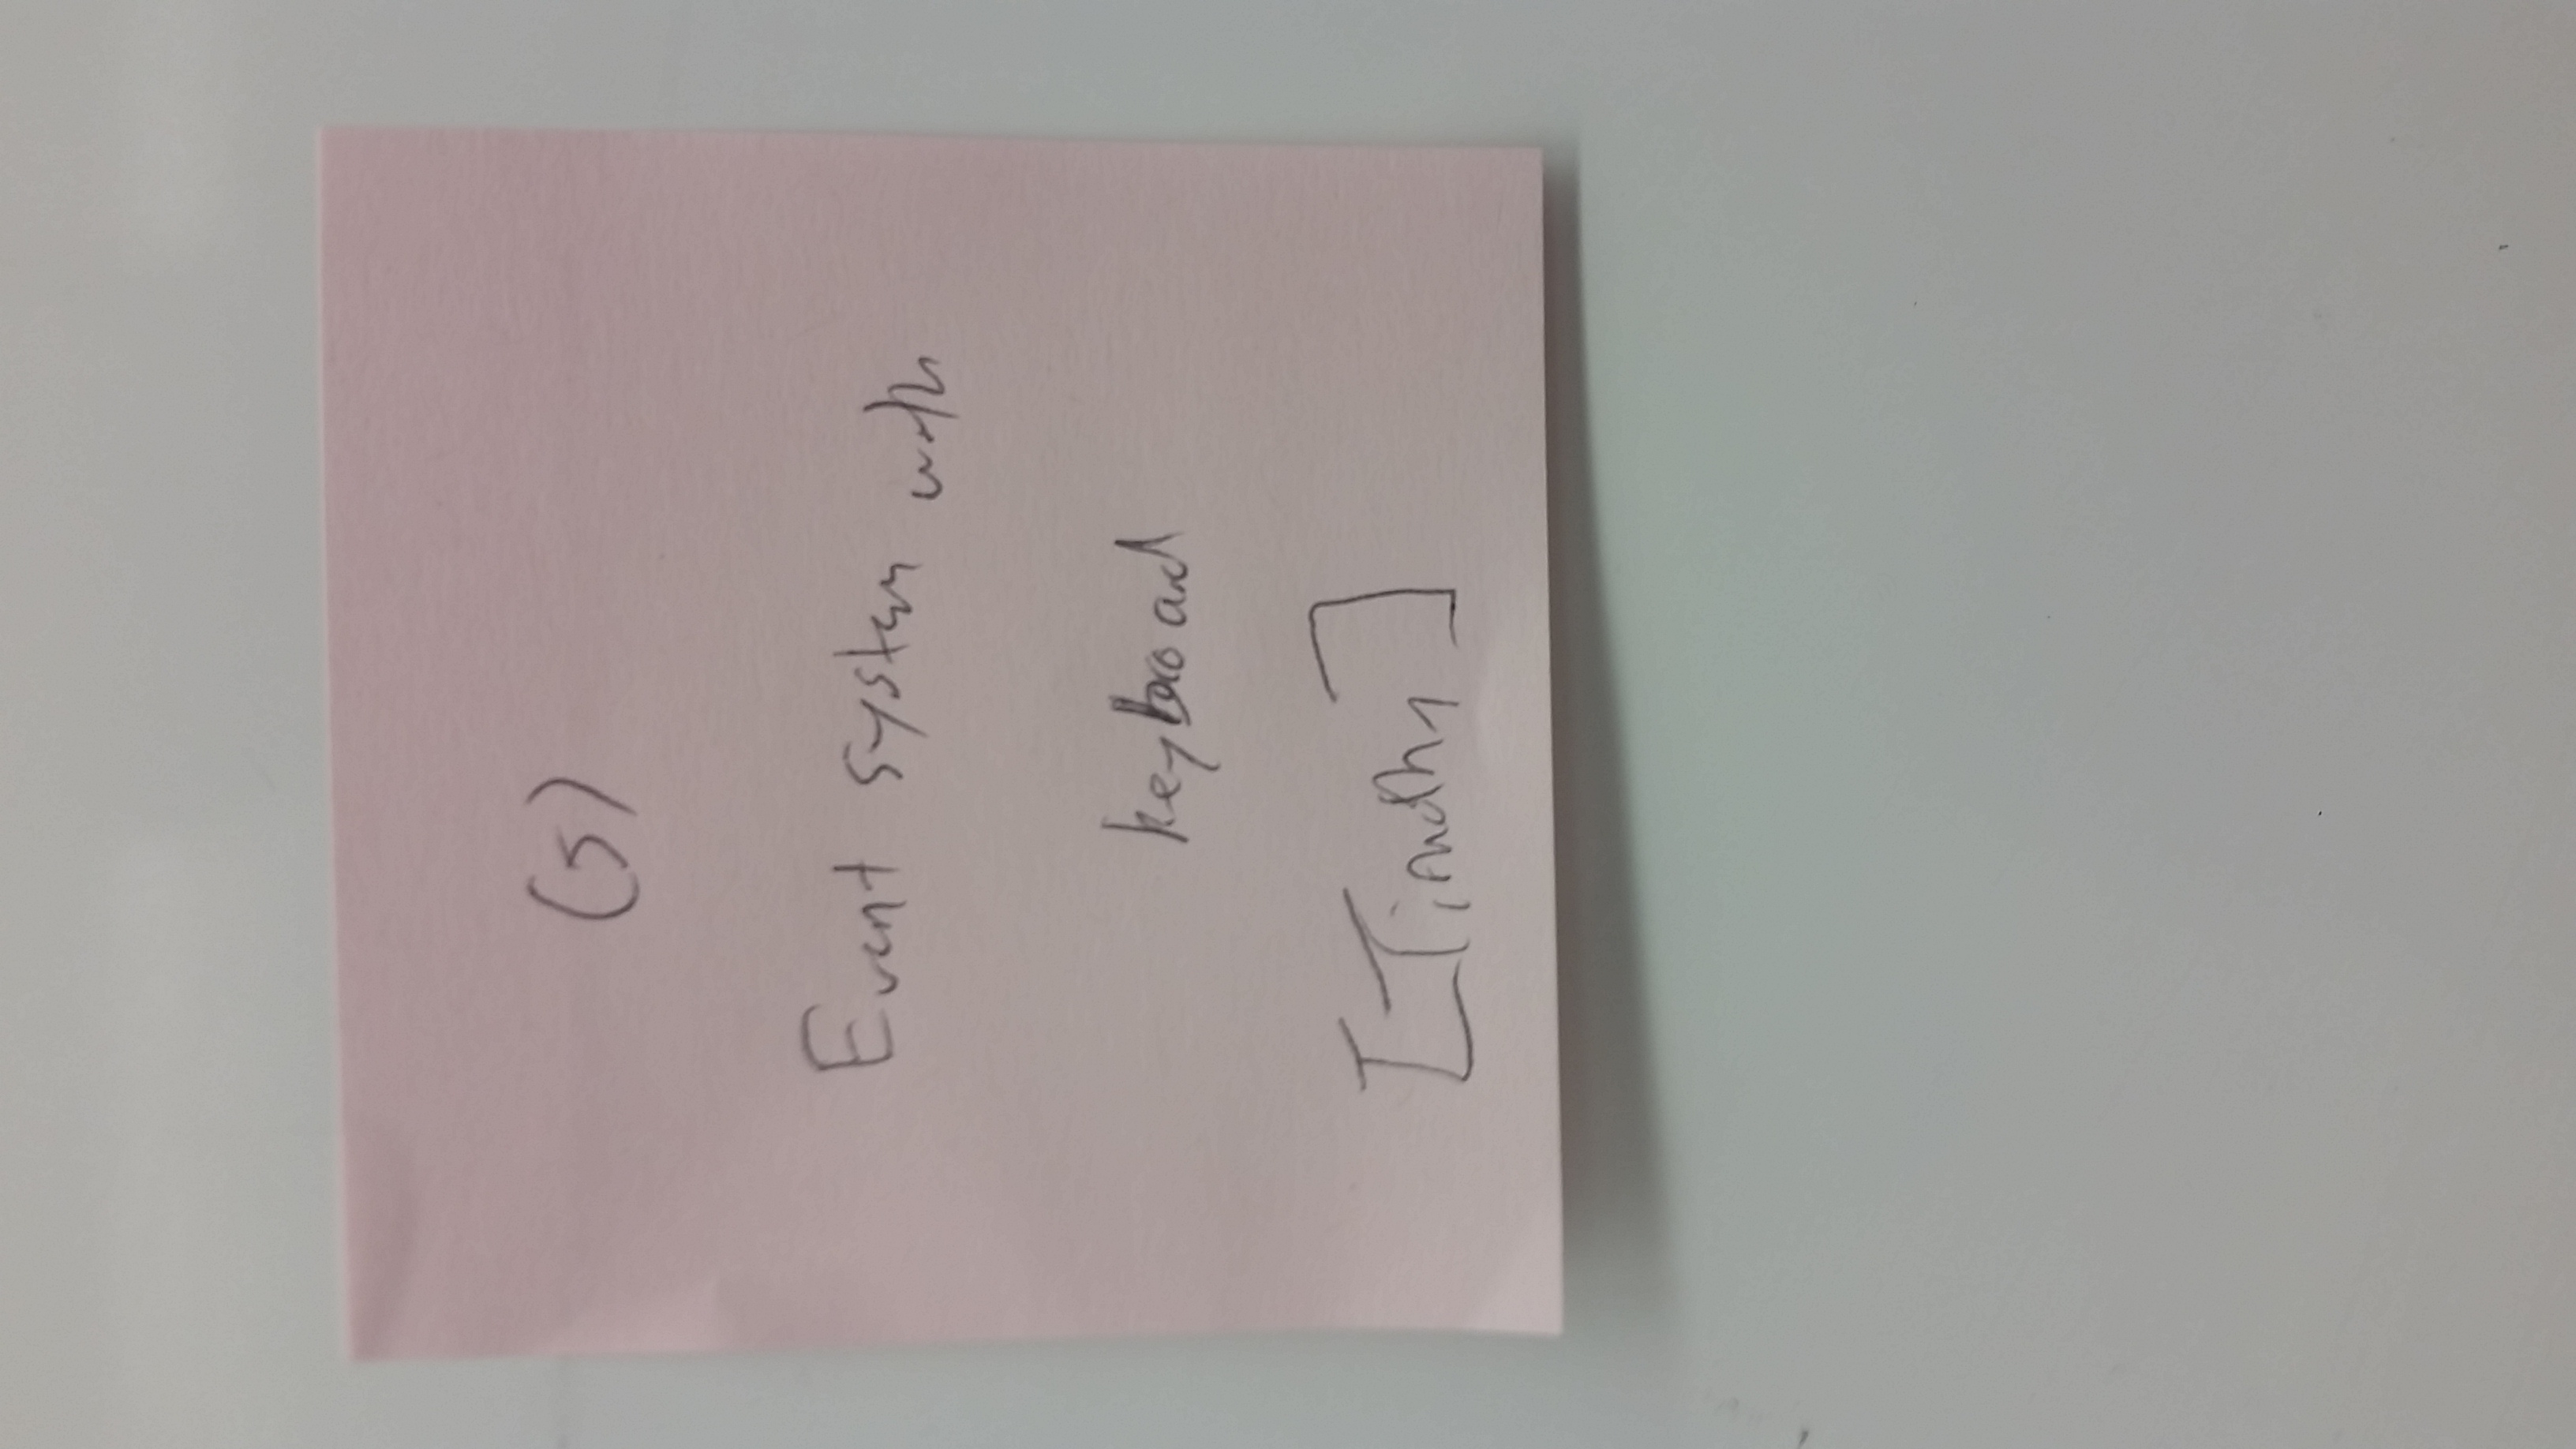 (5)
Event system with
keyboard
[Timothy]